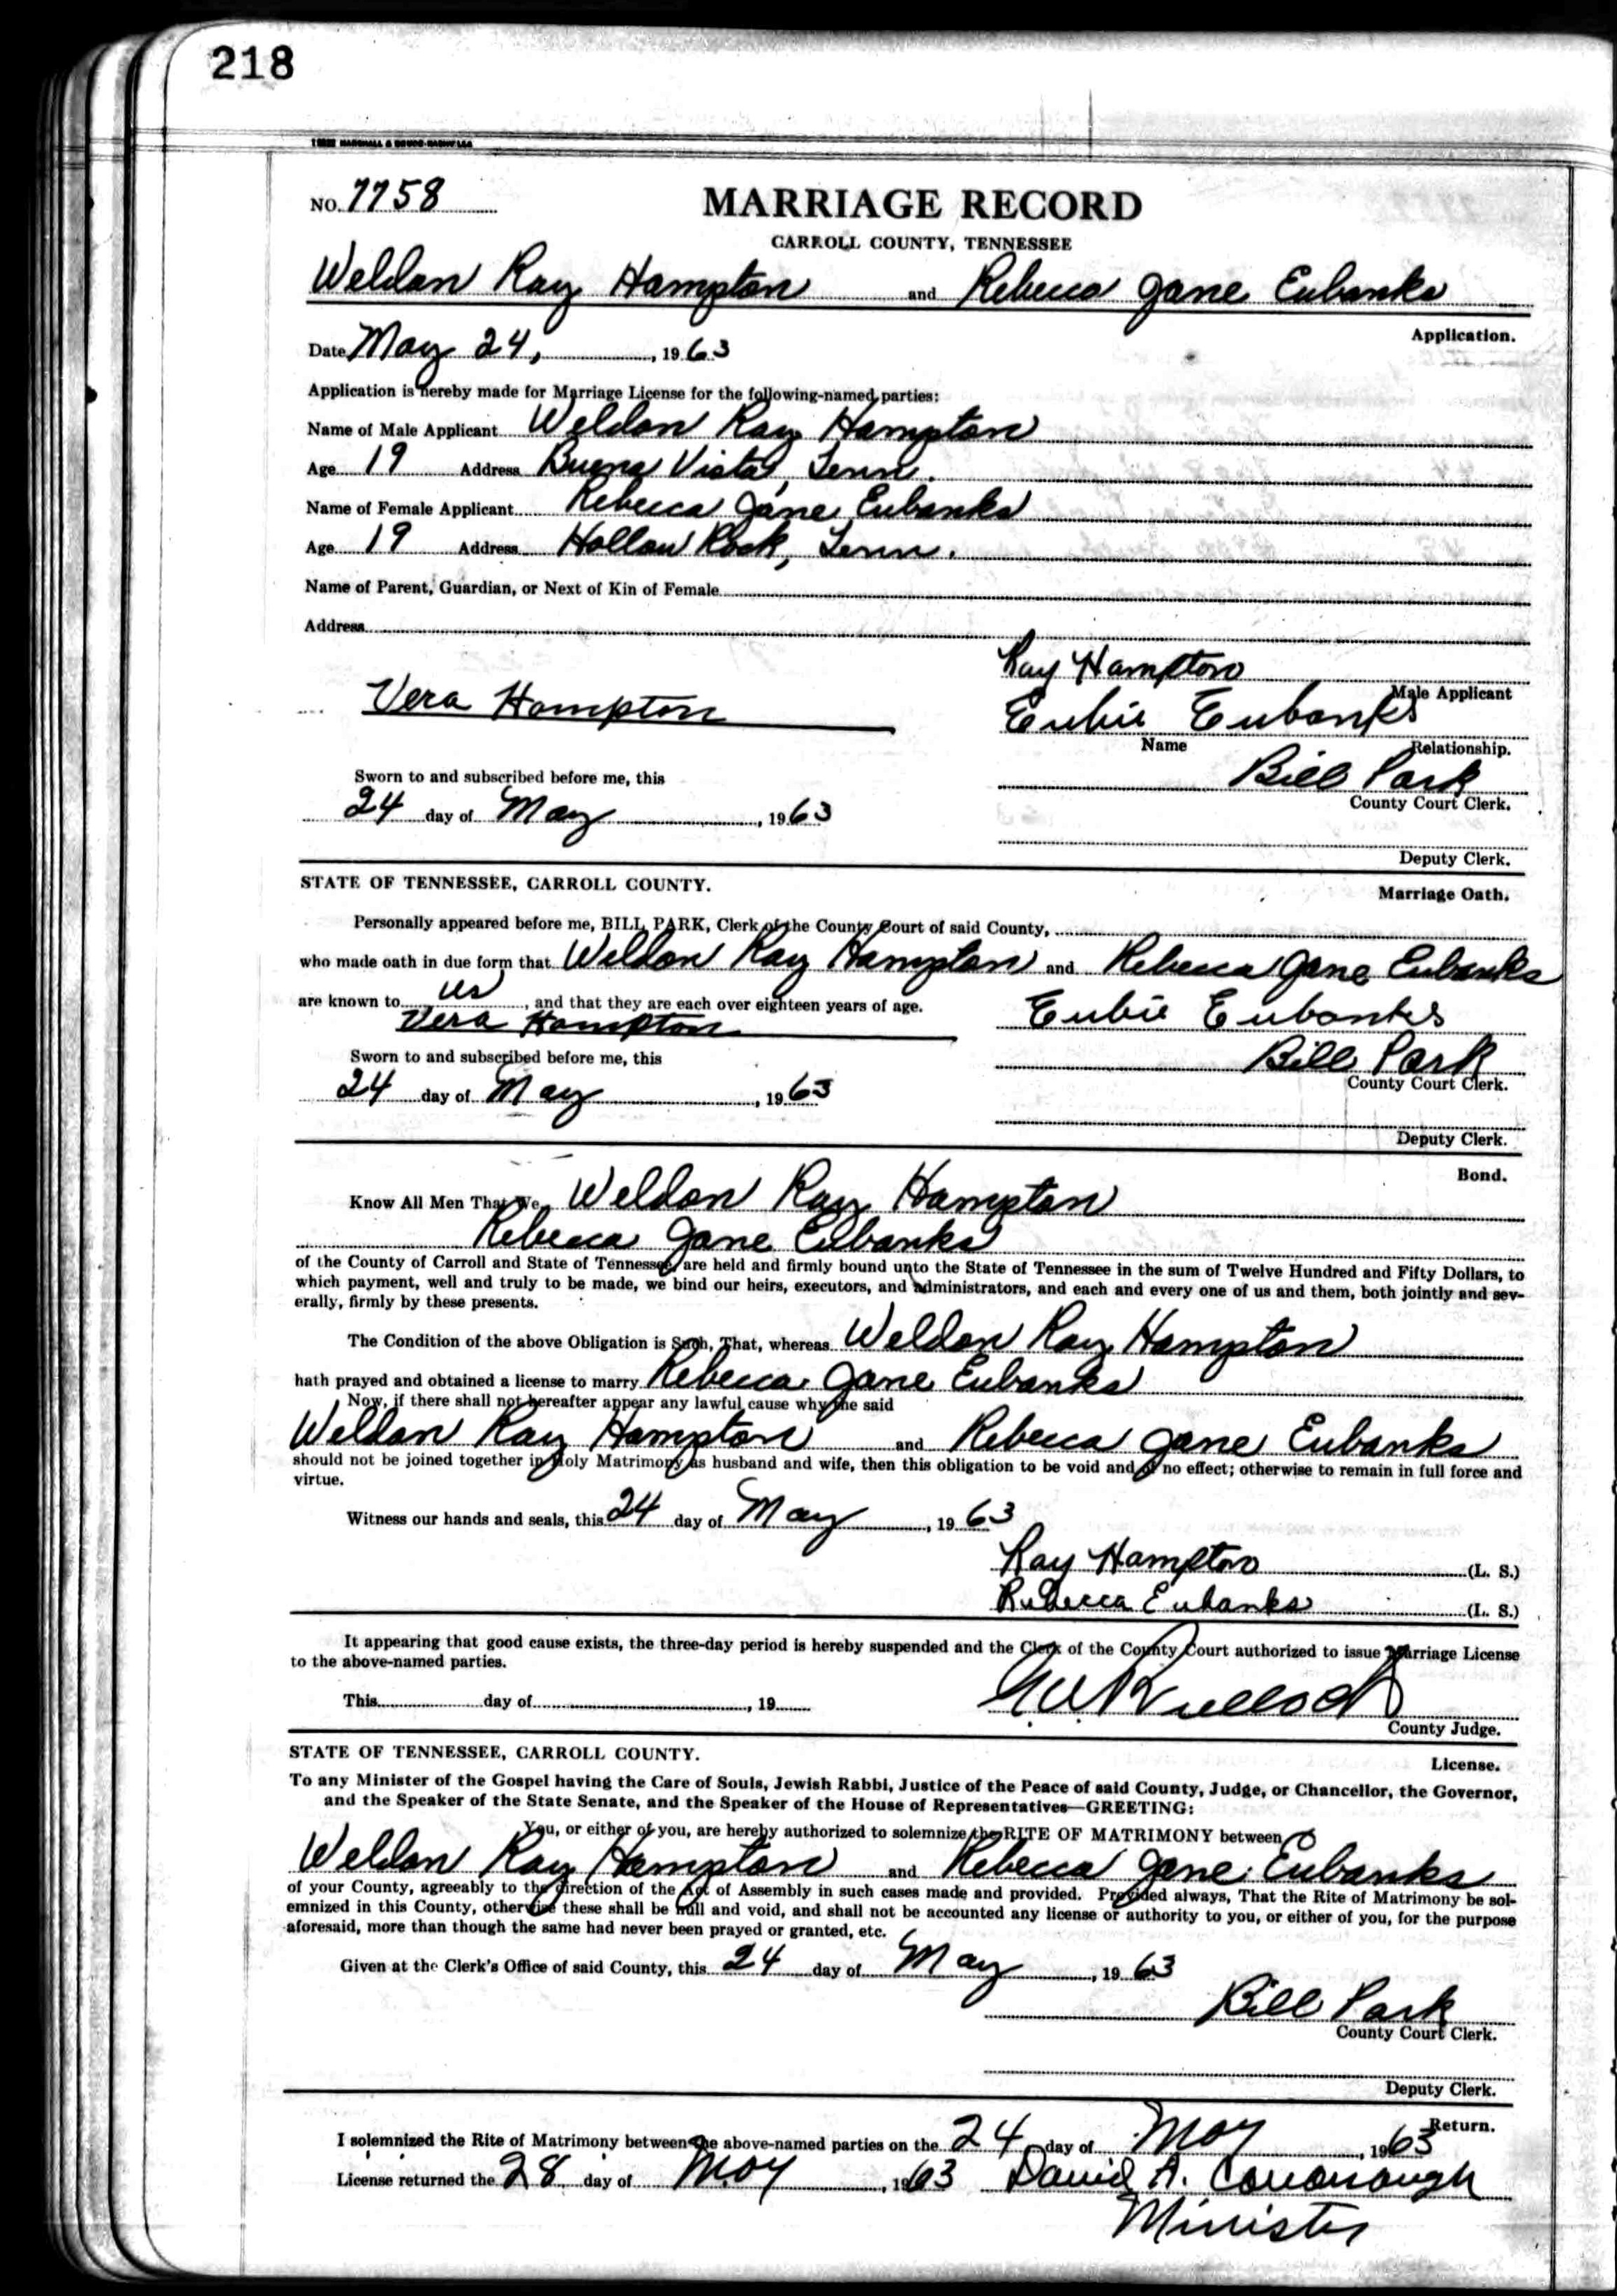 218
MARSHALL & BRUCE-NASHVILLE
NO. 7758
MARRIAGE RECORD
CARROLL COUNTY, TENNESSEE
Weldon Ray Hampton and Rebecca Jane Eubanks
Application.
Date May 24, 1963
Application is hereby made for Marriage License for the following-named parties:
Name of Male Applicant Weldon Ray Hampton
Age 19 Address Buena Vista, Tenn.
Name of Female Applicant Rebecca Jane Eubanks
Age 19 Address Hollow Rock, Tenn.
Name of Parent, Guardian, or Next of Kin of Female
Address
Ray Hampton
Male Applicant
Vera Hampton Eubie Eubanks
Name Relationship.
Sworn to and subscribed before me, this Bill Park
County Court Clerk.
24 day of May, 1963
Deputy Clerk.
STATE OF TENNESSEE, CARROLL COUNTY.
Marriage Oath.
Personally appeared before me, BILL PARK, Clerk of the County Court of said County,
who made oath in due form that Weldon Ray Hampton and Rebecca Jane Eubanks
are known to us, and that they are each over eighteen years of age.
Vera Hampton Eubie Eubanks
Sworn to and subscribed before me, this Bill Park
County Court Clerk.
24 day of May, 1963
Deputy Clerk.
Bond.
Know All Men That We Weldon Ray Hampton
Rebecca Jane Eubanks
of the County of Carroll and State of Tennessee, are held and firmly bound unto the State of Tennessee in the sum of Twelve Hundred and Fifty Dollars, to
which payment, well and truly to be made, we bind our heirs, executors, and administrators, and each and every one of us and them, both jointly and sev-
erally, firmly by these presents.
The Condition of the above Obligation is Such, That, whereas Weldon Ray Hampton
hath prayed and obtained a license to marry Rebecca Jane Eubanks
Now, if there shall not hereafter appear any lawful cause why the said
Weldon Ray Hampton and Rebecca Jane Eubanks
should not be joined together in Holy Matrimony as husband and wife, then this obligation to be void and of no effect; otherwise to remain in full force and
virtue.
Witness our hands and seals, this 24 day of May, 1963
Ray Hampton (L. S.)
Rebecca Eubanks (L. S.)
It appearing that good cause exists, the three-day period is hereby suspended and the Clerk of the County Court authorized to issue Marriage License
to the above-named parties.
This day of , 19
County Judge.
STATE OF TENNESSEE, CARROLL COUNTY.
License.
To any Minister of the Gospel having the Care of Souls, Jewish Rabbi, Justice of the Peace of said County, Judge, or Chancellor, the Governor,
and the Speaker of the State Senate, and the Speaker of the House of Representatives—GREETING:
You, or either of you, are hereby authorized to solemnize the RITE OF MATRIMONY between
Weldon Ray Hampton and Rebecca Jane Eubanks
of your County, agreeably to the direction of the Act of Assembly in such cases made and provided. Provided always, That the Rite of Matrimony be sol-
emnized in this County, otherwise these shall be null and void, and shall not be accounted any license or authority to you, or either of you, for the purpose
aforesaid, more than though the same had never been prayed or granted, etc.
Given at the Clerk's Office of said County, this 24 day of May, 1963
Bill Park
County Court Clerk.
Deputy Clerk.
Return.
I solemnized the Rite of Matrimony between the above-named parties on the 24 day of May, 1963
License returned the 28 day of May, 1963 David A. Cavanaugh
Minister